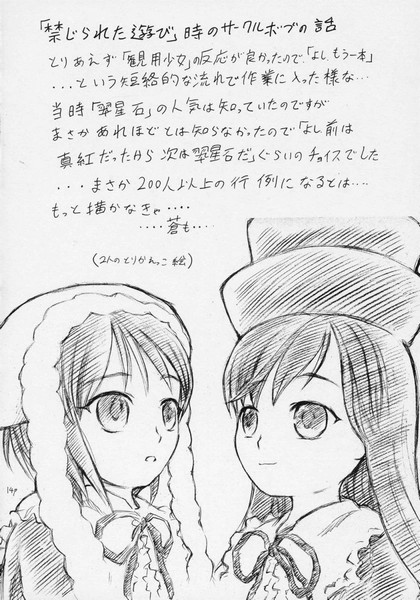 「禁じられた遊び」時のサークルポプの話
とりあえず「観用少女」の反応が良かったので、「よし、もう一本」
...という短絡的な流れで作業に入った様な...
当時「翠星石」の人気は知っていたのですが
まさか あれほどとは知らなかったので「よし前は
真紅だったから 次は翠星石だ」ぐらいのチョイスでした
...まさか 200人以上の行例になるとは....
もっと描かなきゃ....
....蒼も....
(2人のとりかえっこ絵)
14P